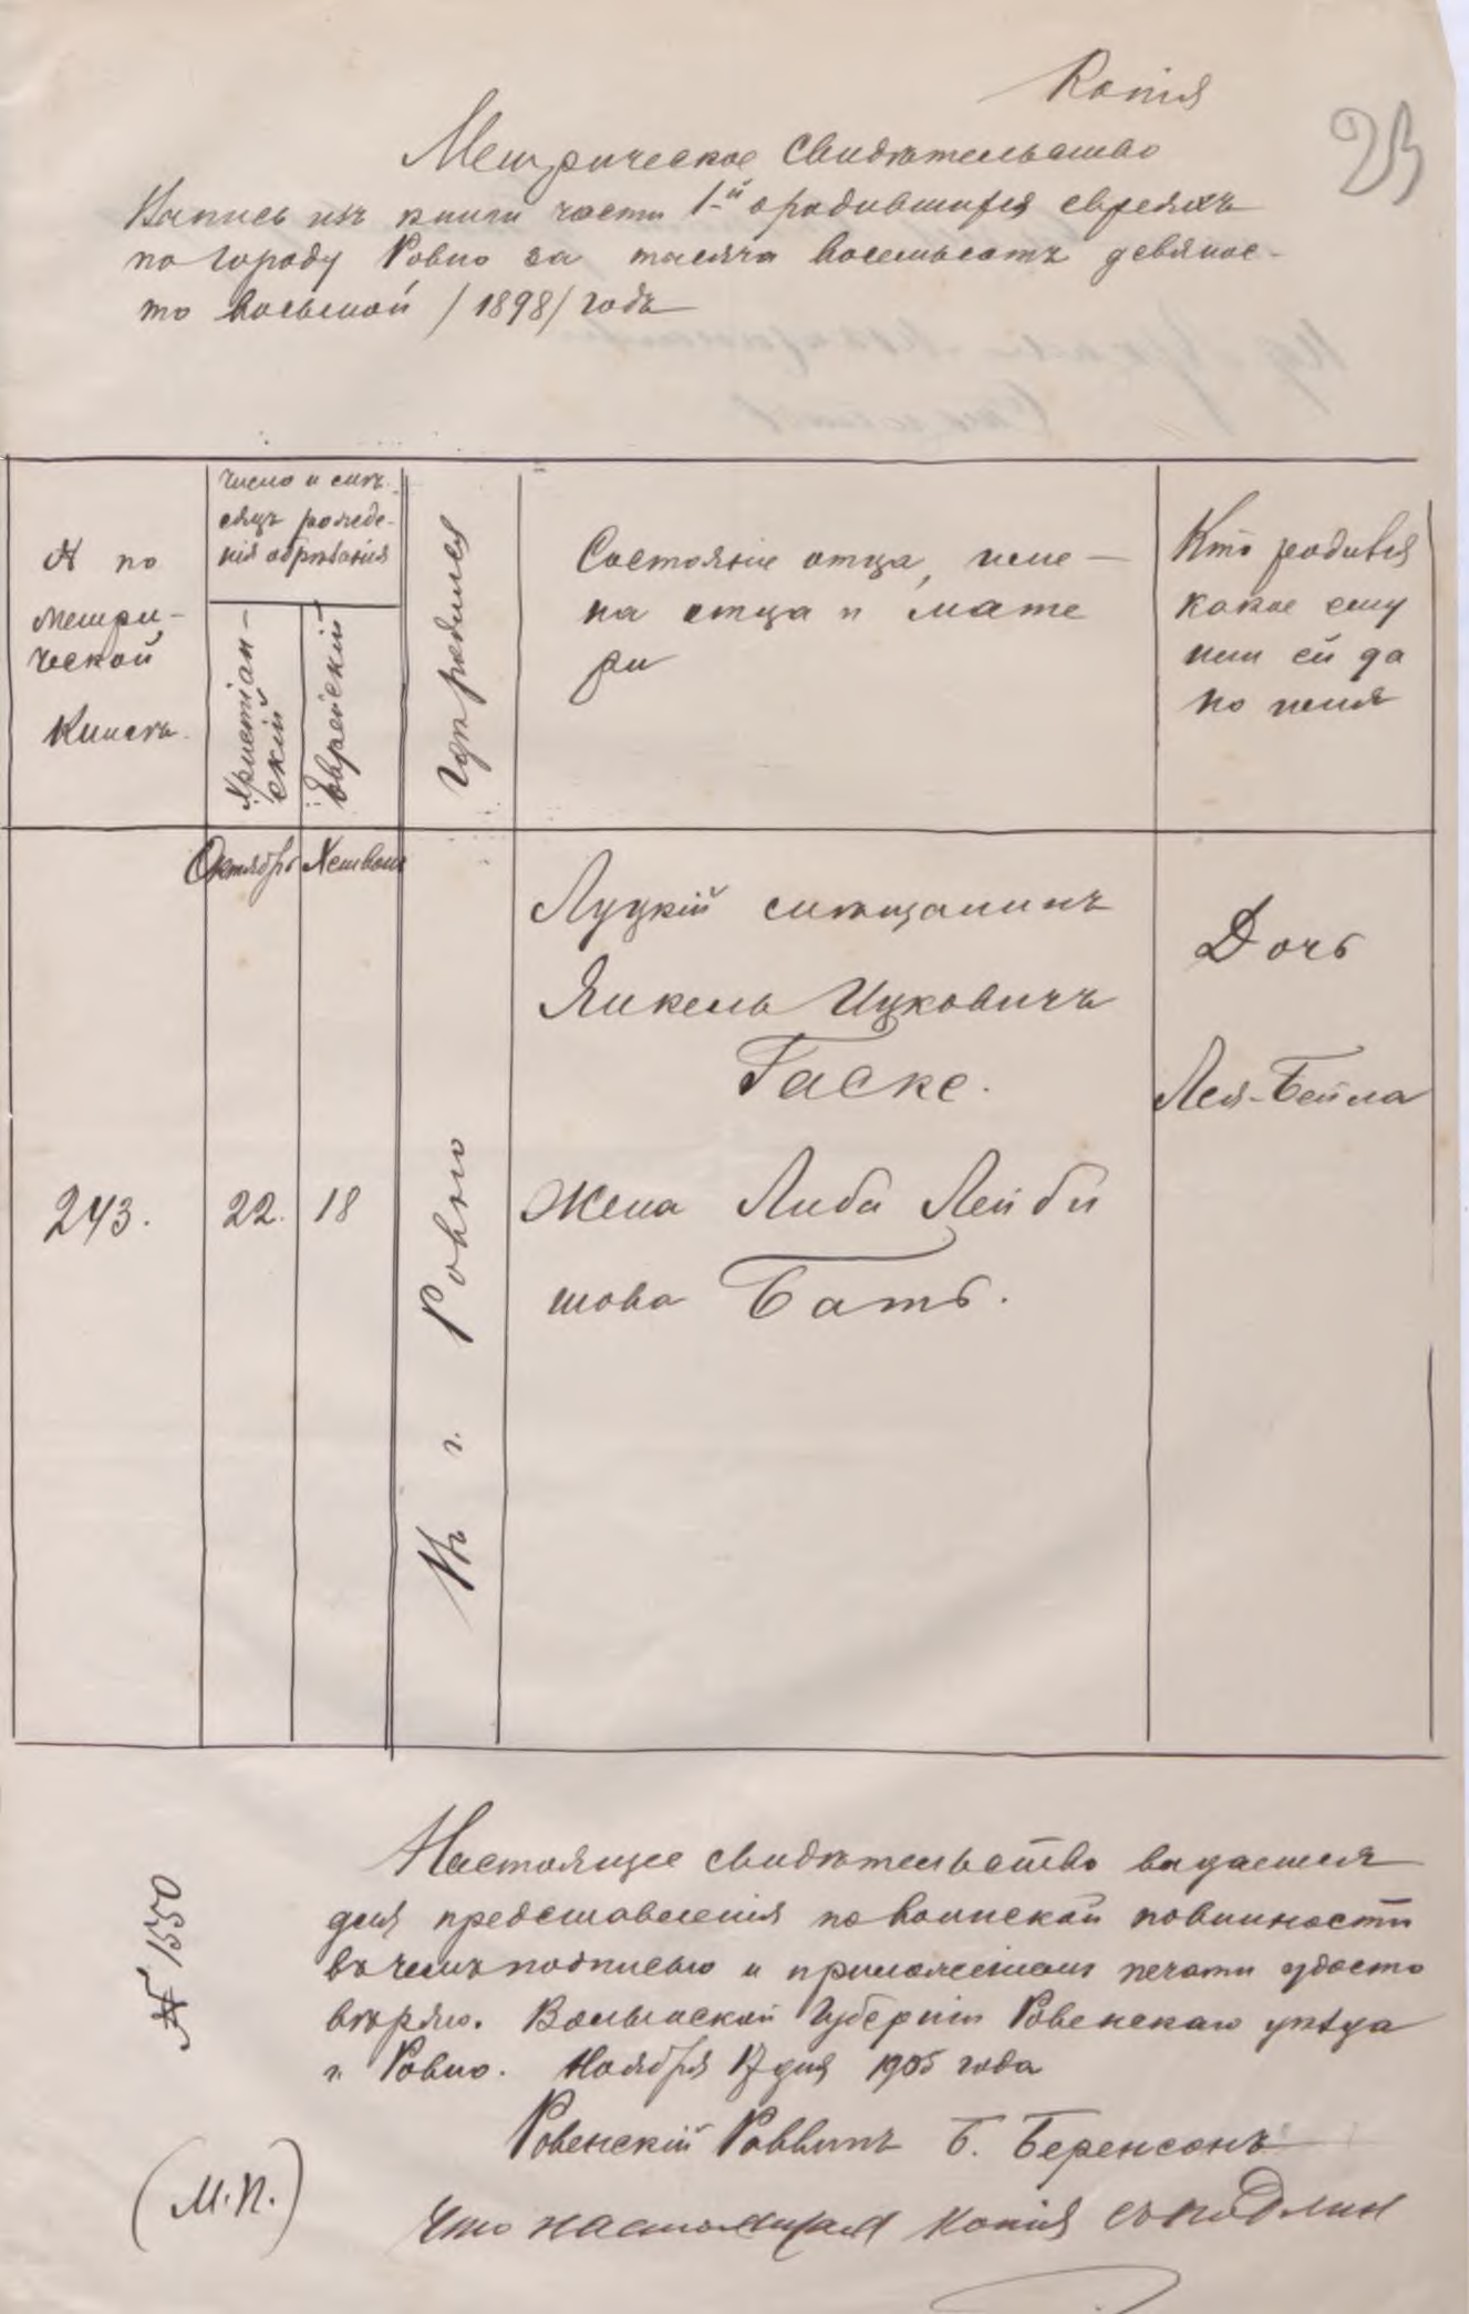 Копія
23
Метрическое Свидѣтельство
Запись изъ книги части 1-й о родившихся евреяхъ
по городу Ровно за тысяча восемьсотъ девянос-
то восьмой /1898/ годъ
№ по
метри-
ческой
Книгѣ.
Число и мѣ-
сяцъ рожде-
нія обрѣзанія
Христіан-
скій
Еврейскій
Гдѣ родился
Состояніе отца, име-
на отца и мате
ри
Кто родился
какое ему
или ей да
но имя
Октябрь
Хешвонъ
243.
22.
18
Въ г. Ровно
Луцкій мѣщанинъ
Янкель Ицковичъ
Гаске.
Жена Либа Лейби
шова Бать.
Дочь
Лея-Бейла
Настоящее свидѣтельство выдается
для представленія по воинской повинности
въ чемъ подписью и приложеніемъ печати удосто
вѣряю. Волынской Губерніи Ровенскаго уѣзда
г. Ровно. Ноября 17 дня 1905 года
№ 1550
Ровенскій Раввинъ Б. Беренсонъ
(М.П.)
Что настоящая копія съ подлин